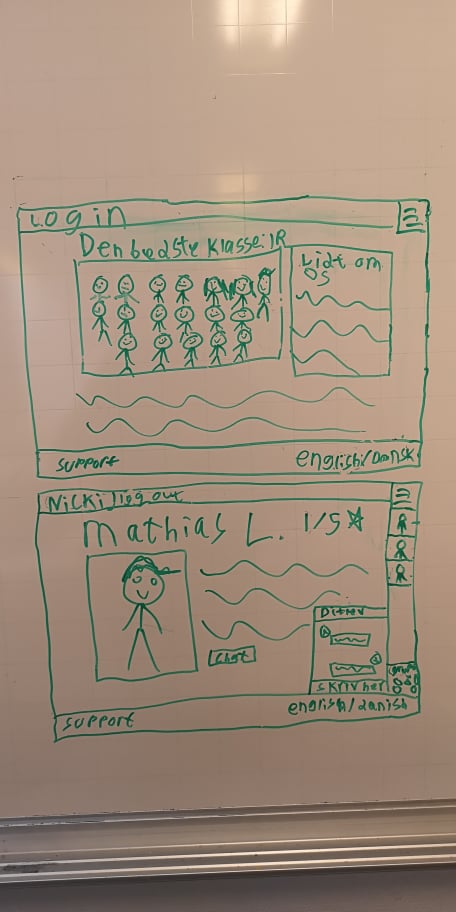 Login
Den bedste klasse: 1R
Lidt om
os
support
english/Dansk
Nicki/log out
Mathias L. 1/5
Chat
skriv her
support
english/danish